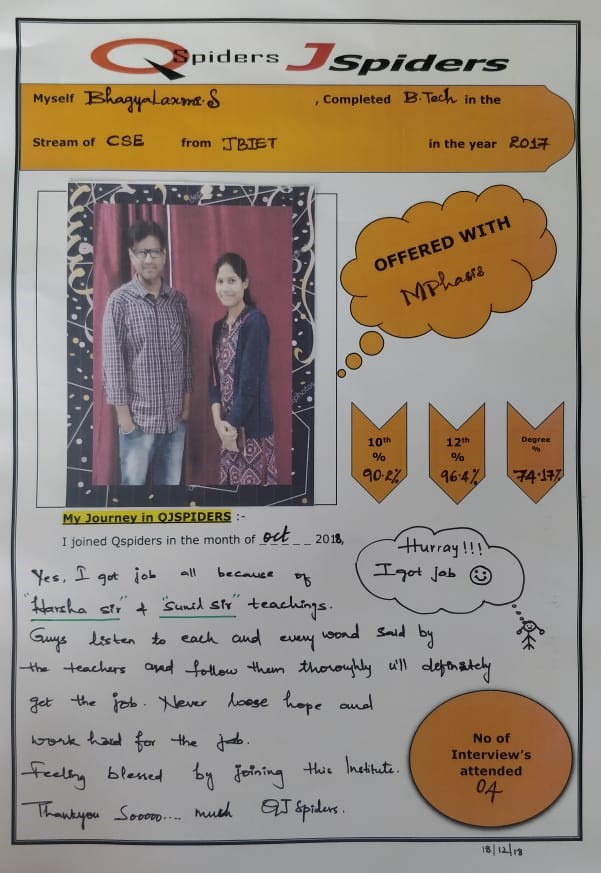 QSpiders JSpiders
Myself BhagyaLaxmi.S , Completed B.Tech in the
Stream of CSE from JBIET in the year 2017
OFFERED WITH
MPhasis
10th
%
90.2%
12th
%
96.4%
Degree
%
74.17%
My Journey in QJSPIDERS :-
I joined Qspiders in the month of oct _ _ 2018,
Hurray!!!
I got job ☺
Yes, I got job all because of
"Harsha sir" & "Sunil sir" teachings.
Guys listen to each and every word said by
the teachers and follow them thoroughly u'll definately
get the job. Never loose hope and
work hard for the job.
Feeling blessed by joining this Institute.
Thankyou Sooooo.... much QJ Spiders.
No of
Interview's
attended
04
18/12/18